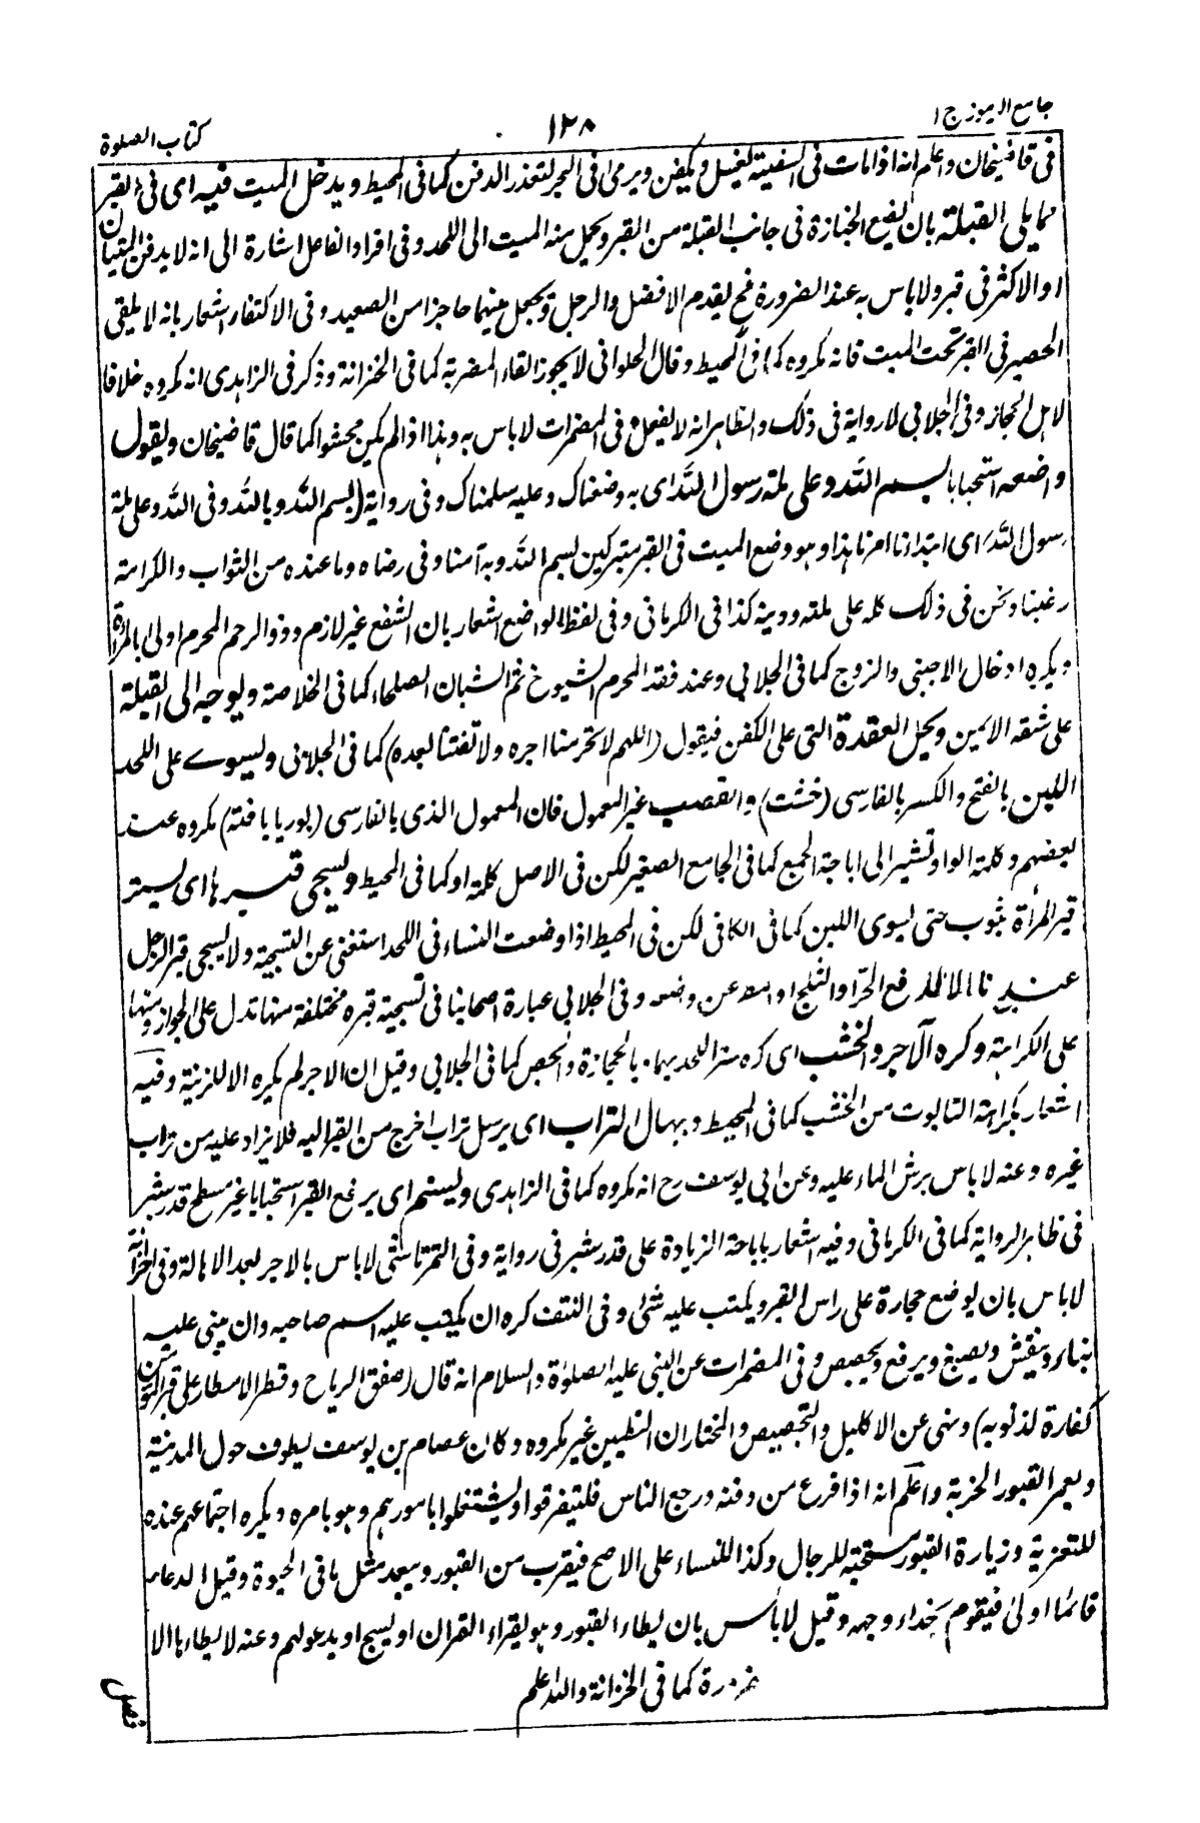 جامع الرموز ج ١
١٢٨
كتاب الصلوة
فى قاضيخان واعلم انه اذا مات فى السفينة يغسل ويكفن ويرمى فى البحر لتعذر الدفن كما فى المحيط ويدخل الميت فيه اى فى القبر
مما يلى القبلة بان يضع الجنازة فى جانب القبلة من القبر ويحمل منه الميت الى اللحد وفى افراد الفاعل اشارة الى انه لا يدفن الميتان
او الاكثر فى قبر ولا باس به عند الضرورة فح يقدم الافضل والرجل ويجعل بينهما حاجزا من الصعيد وفى الاكتفاء اشعار بانه لا يلقى
الحصير فى القبر تحت الميت فانه مكروه كما فى المحيط وقال الحلوانى لا يجوز القاء المضربة كما فى الخزانة وذكر فى الزاهدى انه مكروه خلافا
لاهل الحجاز وفى الجلابى لا رواية فى ذلك والظاهر انه لا يفعل وفى المضمرات لا باس به وهذا اذا لم يكن محشوا كما قال قاضيخان ويقول
واضعه استحبابا بسم الله وعلى ملة رسول الله اى به وضعناك وعليه سلمناك وفى رواية (بسم الله وبالله وفى الله وعلى ملة
رسول الله) اى ابتدانا امرنا هذا وهو وضع الميت فى القبر متبركين بسم الله وبه آمنا وفى رضاه وما عنده من الثواب والكرامة
رغبنا ونحن فى ذلك كله على ملته ودينه كذا فى الكرمانى وفى لفظ الواضع اشعار بان الشفع غير لازم وذو الرحم المحرم اولى بالمرأة
ويكره ادخال الاجنبى والزوج كما فى الجلابى وعند فقد المحرم الشيوخ ثم الشبان الصلحاء كما فى الخلاصة ويوجه الى القبلة
على شقه الايمن ويحل العقدة التى على الكفن فيقول (اللهم لا تحرمنا اجره ولا تفتنا بعده) كما فى الجلابى ويسوى على اللحد
اللبن بالفتح والكسر بالفارسى (خشت) والقصب غير المعمول فان المعمول الذى بالفارسى (بوريا بافته) مكروه عند
بعضهم وكلمة الواو تشير الى اباحة الجمع كما فى الجامع الصغير لكن فى الاصل كلمة او كما فى المحيط ويسجى قبرها اى يستر
قبر المرأة بثوب حتى يسوى اللبن كما فى الكافى لكن فى المحيط اذا وضعت النساء فى اللحد استغنى عن التسجية ولا يسجى قبر الرجل
عندنا الا لدفع الحر او الثلج او عن وفى الجلابى عبارة اصحابنا فى تسجية قبره مختلفة منها تدل على الجواز ومنها
على الكراهة وكره الآجر والخشب اى كره ستر اللحد بهما بالحجارة والجص كما فى الجلابى وقيل ان الاجر لم يكره الا للزينة وفيه
اشعار بكراهة التابوت من الخشب كما فى المحيط ويهال التراب اى يرسل تراب اخرج من القبر اليه فلا يزاد عليه من تراب
غيره وعنه لا باس برش الماء عليه وعن ابى يوسف رح انه مكروه كما فى الزاهدى ويسنم اى يرفع القبر استحبابا غير مسطح قدر شبر
فى ظاهر الرواية كما فى الكرمانى وفيه اشعار باباحة الزيادة على قدر شبر فى رواية وفى التمرتاشى لا باس بالاجر بعد الاهالة وفى الخزانة
لا باس بان يوضع حجارة على راس القبر ويكتب عليه شئ وفى النتف كره ان يكتب عليه اسم صاحبه وان يبنى عليه
بناء وينقش ويصبغ ويرفع ويجصص وفى المضمرات عن النبى عليه الصلوة والسلام انه قال (صفق الرياح وقطر الامطار على قبر المؤمن
كفارة لذنوبه) ونهى عن الاكليل والتجصيص والمختار ان التطيين غير مكروه وكان عصام بن يوسف يطوف حول المدينة
ويعمر القبور الخربة واعلم انه اذا فرغ من دفنه ورجع الناس فليتفرقوا وليشتغلوا بامورهم وهو بامره ويكره اجتماعهم عنده
للتعزية وزيارة القبور مستحبة للرجال وكذا للنساء على الاصح فيقرب من القبور ويبعد مثل ما فى الحيوة وقيل الدعاء
قائما اولى فيقوم بحذاء وجهه وقيل لا باس بان يطاء القبور وهو يقراء القران او يسبح او يدعو لهم وعنه لا يطاءها الا
ضرورة كما فى الخزانة والله اعلم
فصل